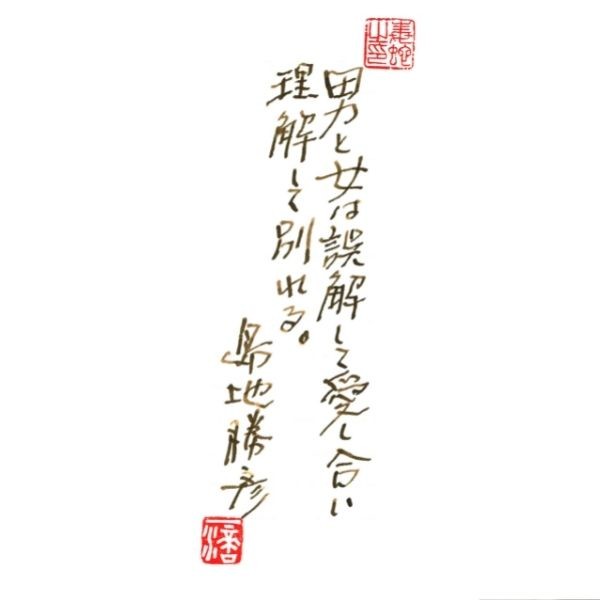 男と女は誤解して愛し合い
理解して別れる。
島地勝彦